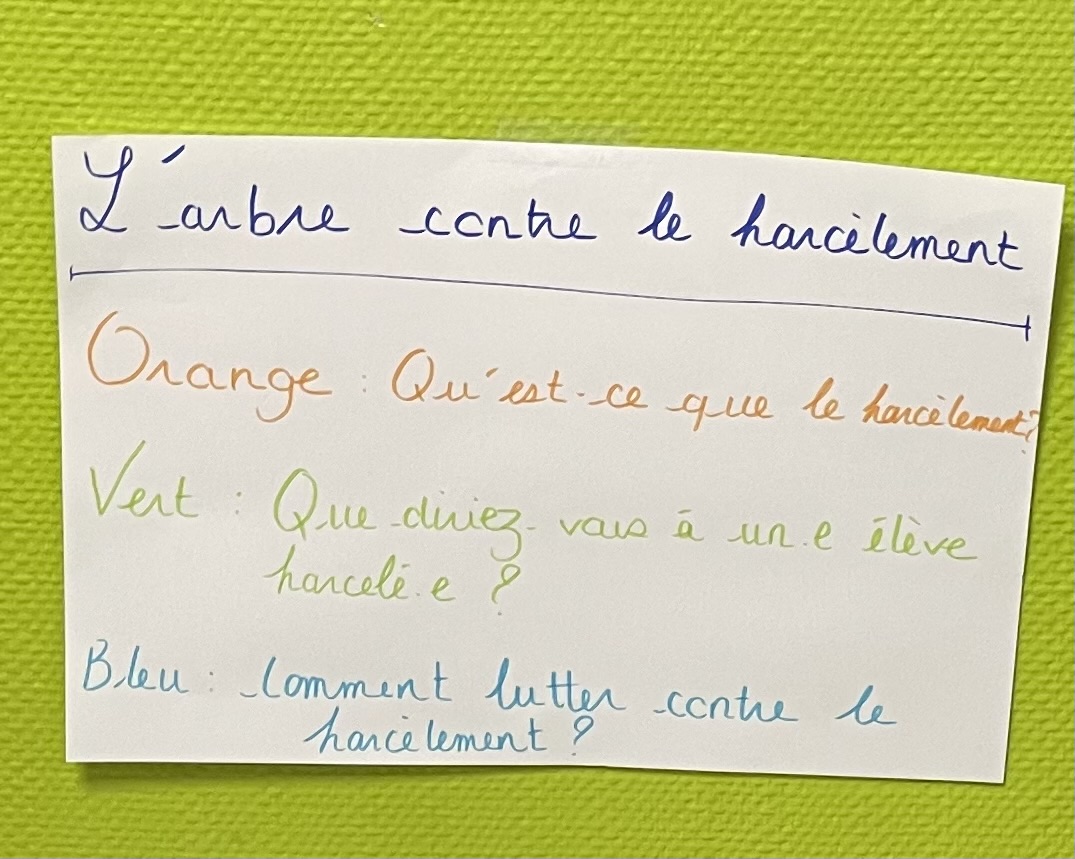 L'arbre contre le harcèlement
Orange : Qu'est-ce que le harcèlement?
Vert : Que diriez-vous à un.e élève
harcelé.e ?
Bleu : Comment lutter contre le
harcèlement ?